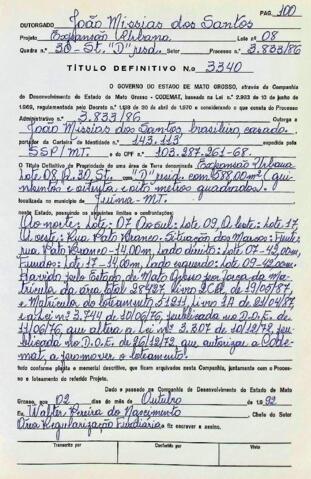 PÁG. 100
OUTORGADO João Missias dos Santos
Projeto Expansão Urbana Lote nº 08
Quadra n.º 30-St. "D" resd. Processo n.º 3.833/86
TÍTULO DEFINITIVO N.o 3340
O GOVERNO DO ESTADO DE MATO GROSSO, através da Companhia
de Desenvolvimento do Estado de Mato Grosso - CODEMAT, baseada na Lei n.º de 10 de junho de
regulamentada pelo Decreto n.º de 30 de abril de 1970 e considerando o que consta do Processo
Administrativo n.º 3.833/86 Outorga a
João Missias dos Santos, brasileiro, casado.
portador da Carteira de Identidade n.º 143.113 expedida pela
SSP/MT. e do CPF n.º 103.287.361-68.
O Título Definitivo de Propriedade de uma área de Terra denominada Expansão Urbana
Lote 08 Q. 30 St. "D" resid. com 588,00m² (qui-
nhentos e oitenta e oito metros quadrados).
localizada no município de Juina-Mt.
neste Estado, possuindo os seguintes limites e confrontações:
Ao norte: Lote-07 Ao sul: Lote 09, A leste: Lote 17,
A oeste: Rua Pato Branco. Situação dos Marcos: Frente:
rua Pato Branco-14,00m, Lado direito: Lote 07-42,00m,
Fundos: Lote-17-14,00m Lado esquerdo: Lote-09-42,00m.
Havido pelo Estado de Mato Grosso por força da Ma-
trícula da área total 28427, livro 2CR, de 19/05/87,
e Matrícula do Loteamento livro de 21/04/87,
e a Lei nº 3.744 de 10/06/76, publicada no D.O.E. de
11/06/76, que altera a Lei nº 3.307 de 10/12/72, pu-
blicada no D.O.E. de 26/12/72, que autoriza a Code-
mat, a promover o loteamento.
tudo conforme planta e memorial descritivo, que ficam arquivados nesta Companhia, juntamente com o Proces-
so e loteamento do referido Projeto.
Dado e passado na Companhia de Desenvolvimento do Estado de Mato
Grosso, aos 02 dias do mês de Outubro de 1992
Eu, Walter Pereira do Nascimento Chefe do Setor
Área Regularização Fundiária fiz escrever e assino.
Transcrito por Conferido por Visto